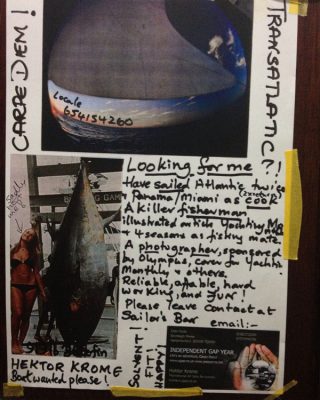 CARPE DIEM!
TRANSATLATIC?!
Locale
654154260
Looking for me
Have sailed Atlantic twice
+ Panama/Miami as cook
A killer fisherman
illustrated on Rich Yachting
+ 4 seasons as a fishing mate.
A photographer, sponsored
by Olympus, cover for Yachting
Monthly & others.
Reliable, afable, hard
working, and fun!
Please leave contact at
Sailor's Bar.
email:-
SOLVENT!
FIT!
HAPPY!
HEKTOR KROME
Boat wanted please!
INDEPENDENT GAP YEAR
Hektor Krome